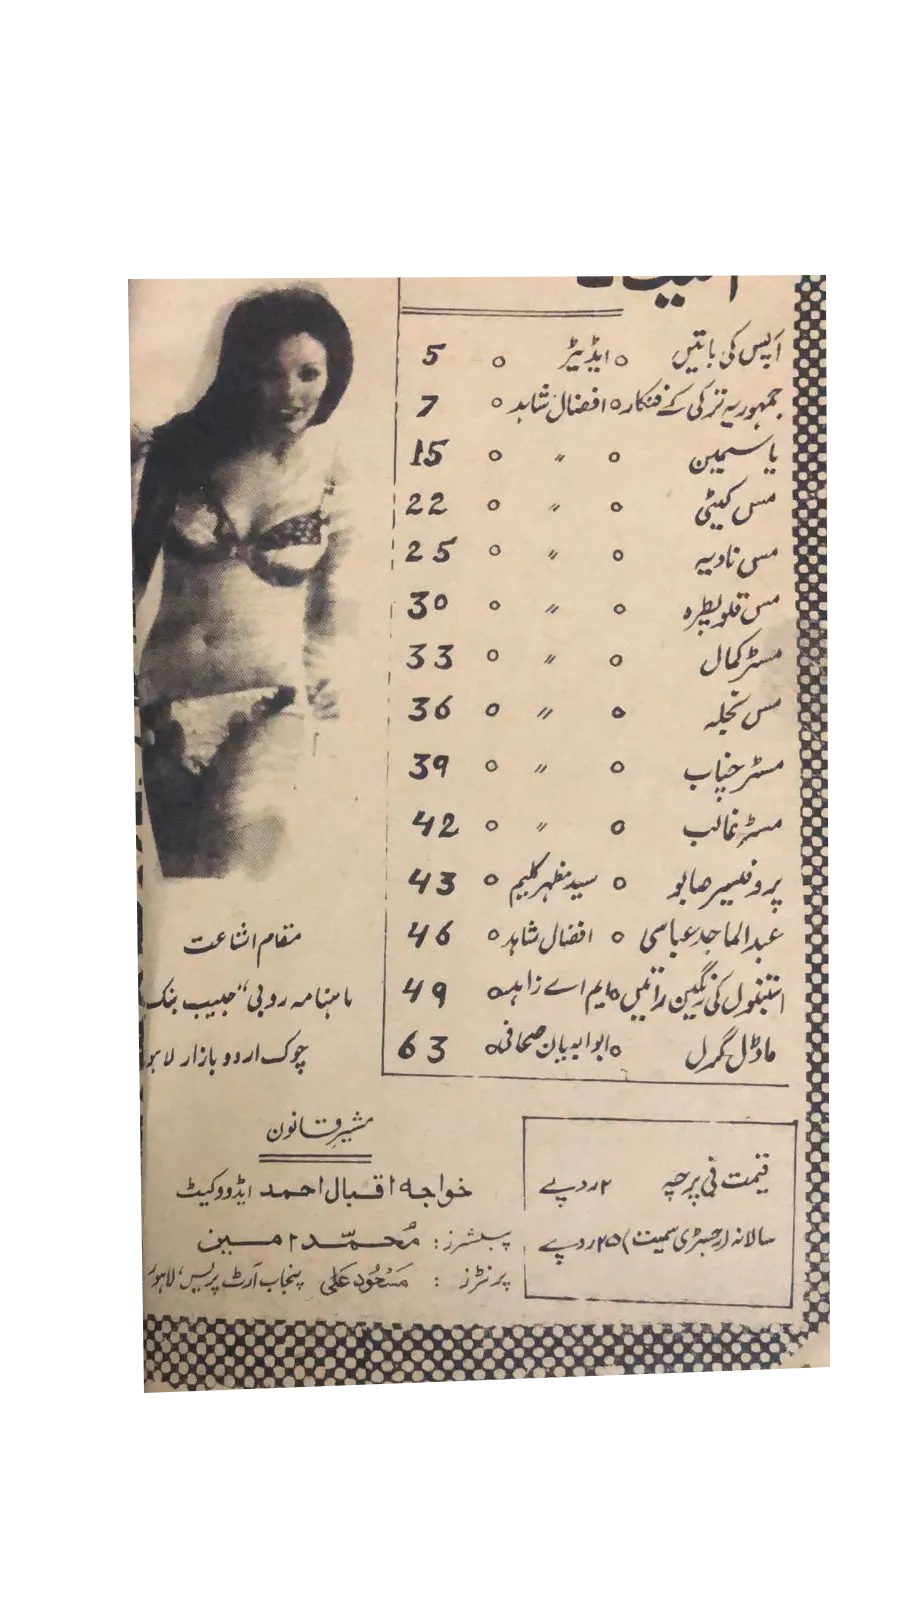 آپس کی باتیں ○ ایڈیٹر ○ 5
جمہوریہ ترکی کے فنکار ○ افضال شاہد ○ 7
یاسمین ○ 〃 ○ 15
مس کیٹی ○ 〃 ○ 22
مس نادیہ ○ 〃 ○ 25
مس قلوپطرہ ○ 〃 ○ 30
مسٹر کمال ○ 〃 ○ 33
مس نجلہ ○ 〃 ○ 36
مسٹر ○ 〃 ○ 39
مسٹر غالب ○ 〃 ○ 42
پروفیسر صابو ○ سید مظہر کلیم ○ 43
عبدالماجد عباسی ○ افضال شاہد ○ 46
استنبول کی رنگین راتیں ○ ایم اے زاہد ○ 49
ماڈل گرل ○ صحافی ○ 63
مقام اشاعت
ماہنامہ روبی "حبیب بنک
چوک اردو بازار لاہو
مشیر قانون
خواجہ اقبال احمد ایڈووکیٹ
پبلشرز : محمد امین
پرنٹرز : مسعود علی پنجاب آرٹ پریس، لاہور
قیمت فی پرچہ ۲ روپے
سالانہ (رجسٹری سمیت) ۲۵ روپے